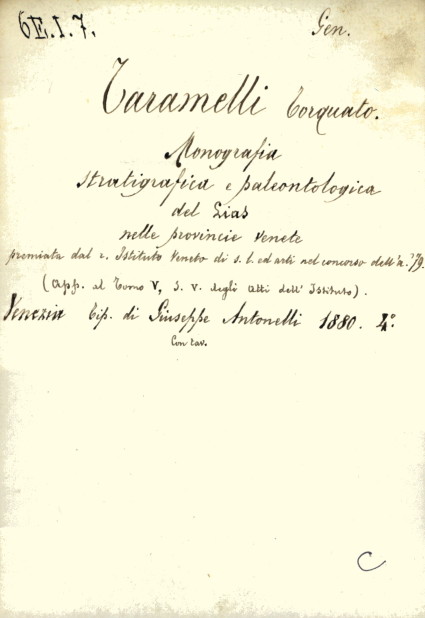 6E.I.7.
Gen.
Taramelli Torquato.
Monografia
stratigrafica e paleontologica
del Lias
nelle provincie venete
premiata dal r. Istituto Veneto di s. l. ed arti nel concorso dell'a. '79.
(App. al Tomo V, S. V. degli Atti dell'Istituto).
Venezia Tip. di Giuseppe Antonelli 1880. 4.°
Con tav.
C